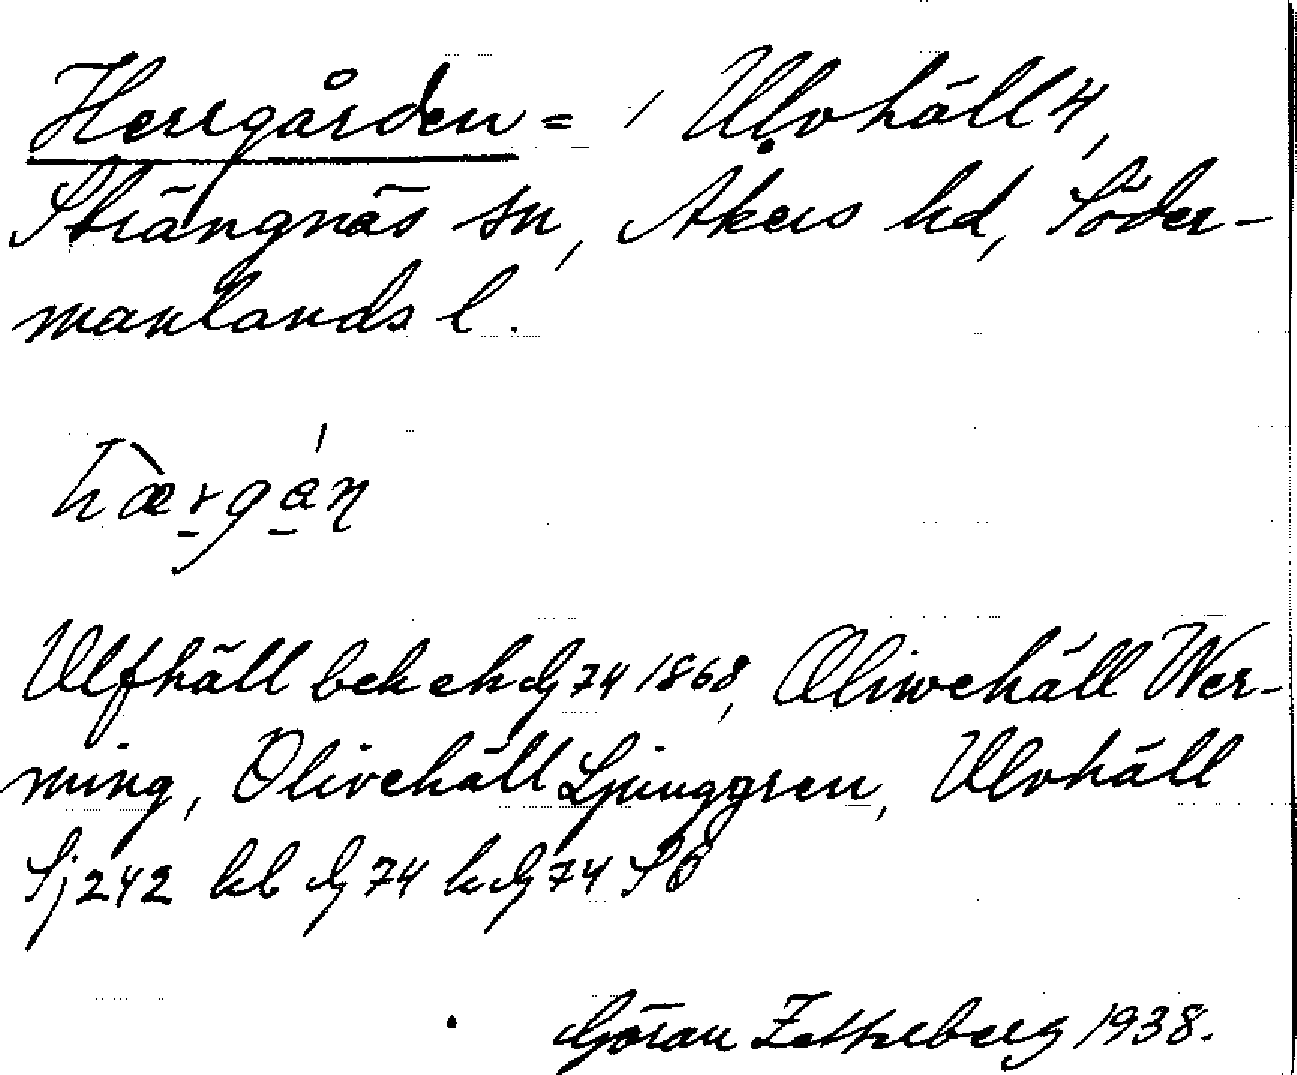 Herrgården = / Ulvhäll 4,
Strängnäs sn, Åkers hd, Söder-
manlands l.
hærgán
Ulfhäll bek ek dj 74 1868, Oliwehäll Wer-
ming, Olivehäll Ljunggren, Ulvhäll
Sj 242 kb dj 74 k dj 74 SÖ
Göran Zetterberg 1938.